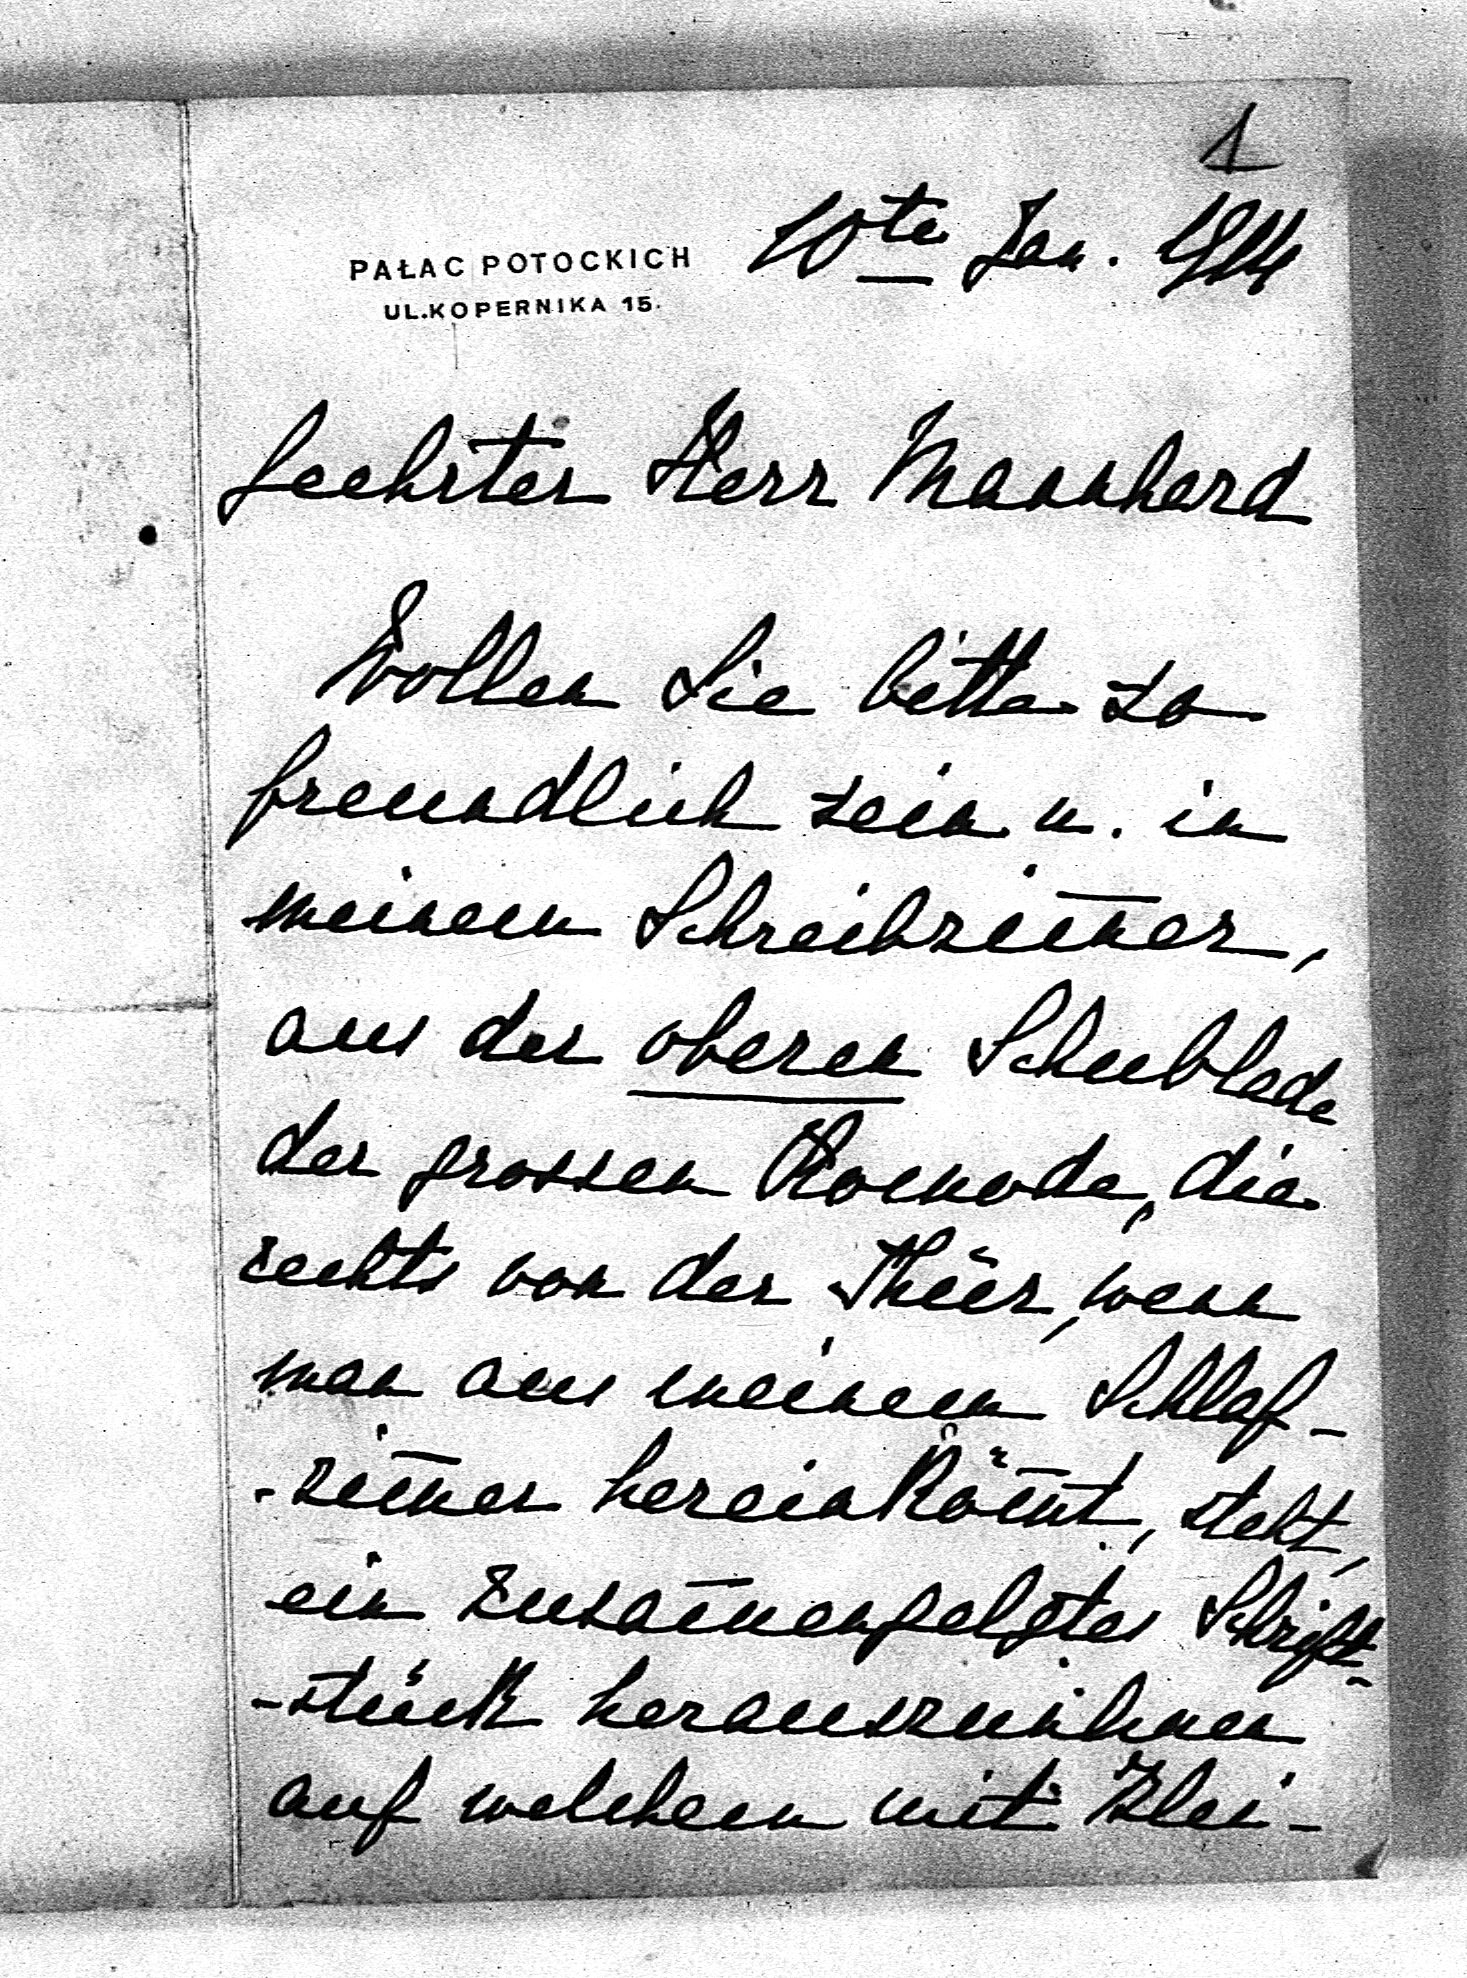 1
10te Jan. 1914
PAŁAC POTOCKICH
UL.KOPERNIKA 15.
Geehrter Herr Mannhard
Wollen Sie bitte so
freundlich sein u. in
meinem Schreibzim̄er,
aus der oberen Schublade
der grossen Kom̄ode, die
rechts von der Thür, wenn
man aus meinem Schlaf-
-zim̄er hereinköm̄t, steht,
ein zusam̄engelgtes Schrift-
-stück herauszunehmen
auf welchem mit Blei-